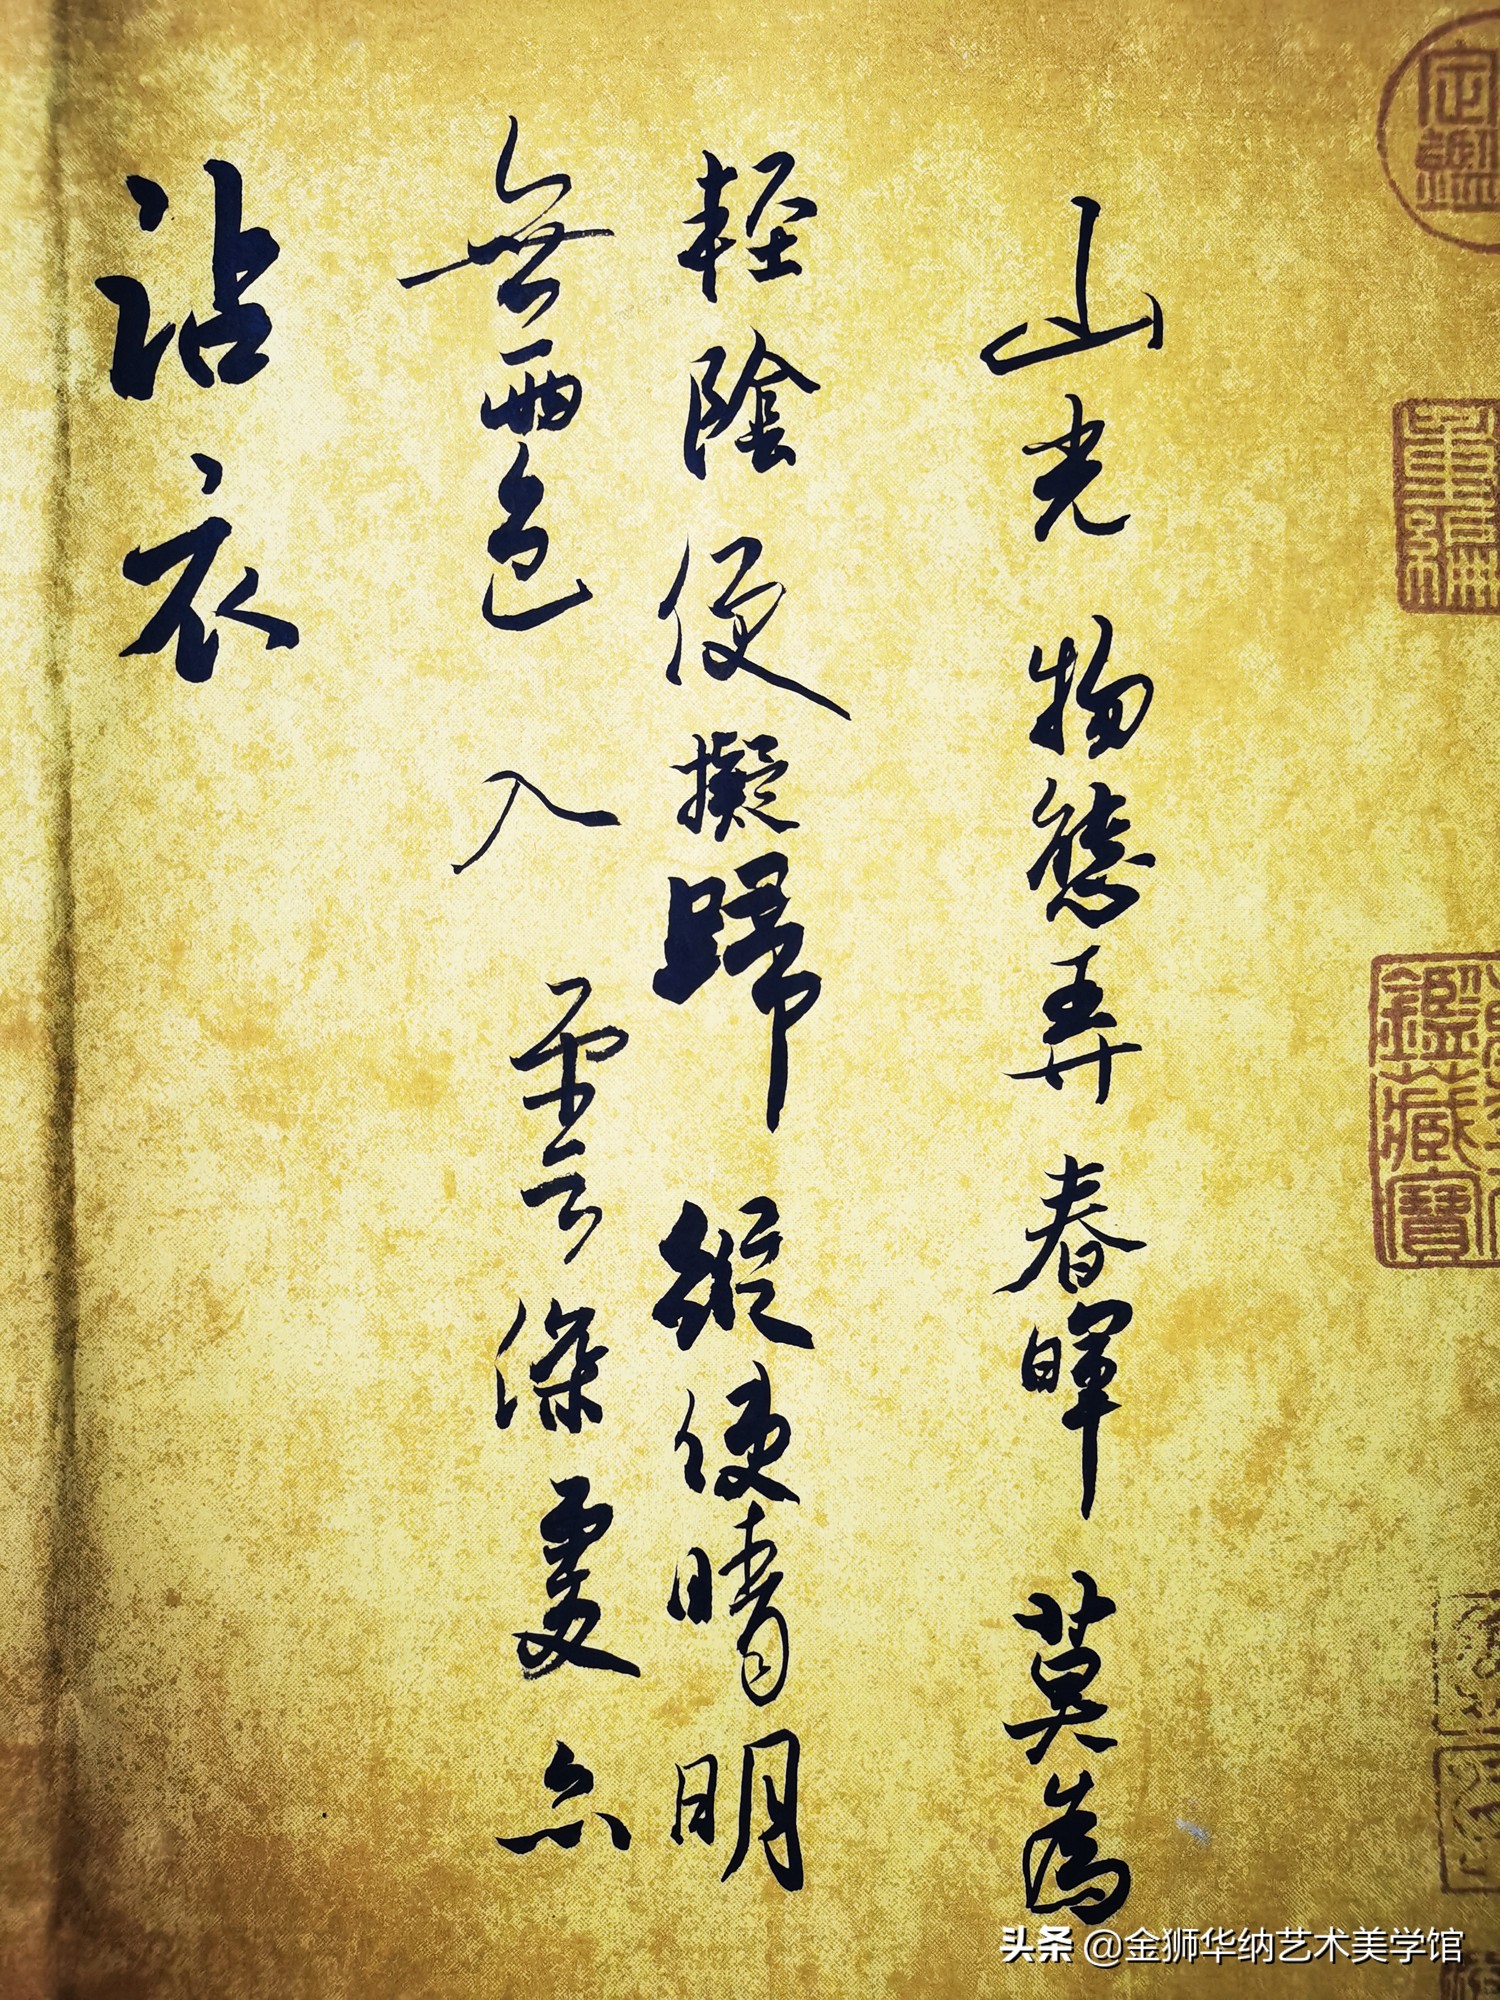 山光物態弄春暉莫為
輕陰便擬歸縱使晴明
無雨色入雲深處亦
沾衣
鑑藏寶
头条 @金狮华纳艺术美学馆